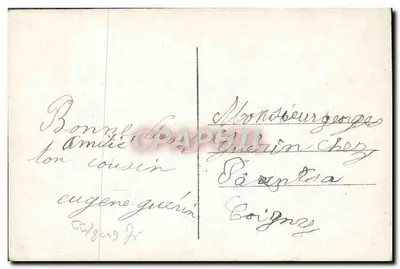 Bonne
Amitié
ton cousin
eugène guérin
Monsieur georges
Guérin chez
Coigny
CPAPHIL